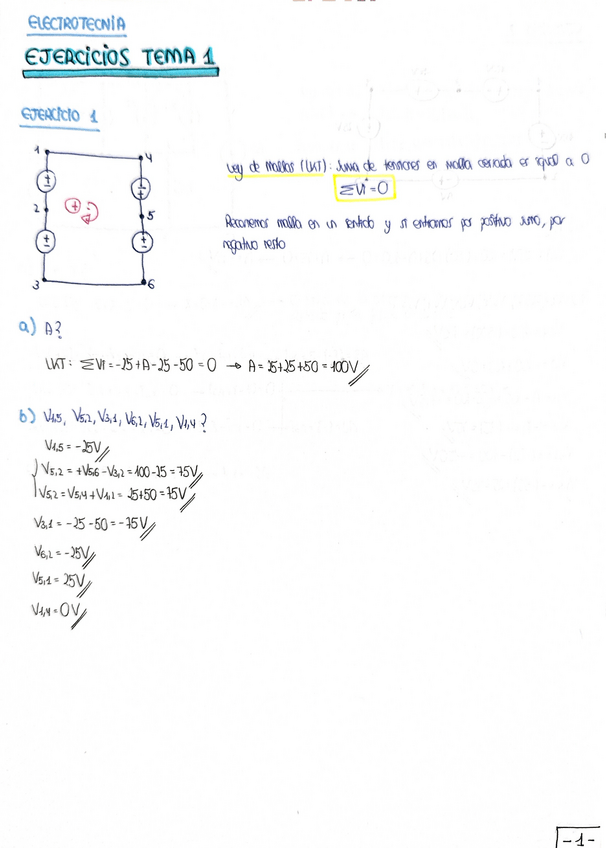 ELECTROTECNIA
EJERCICIOS TEMA 1
EJERCICIO 1
1
4
2
5
3
6
+
Ley de mallas (LKT): suma de tensiones en malla cerrada es igual a 0
ΣVi = 0
Recorremos malla en un sentido y si entramos por positivo sumo, por
negativo resto
a) A?
LKT: ΣVi = -25 + A - 25 - 50 = 0 → A = 25 + 25 + 50 = 100V
b) V1,5, V5,2, V3,1, V6,2, V5,1, V1,4?
V1,5 = -25V
V5,2 = +V5,6 - V3,2 = 100 - 25 = 75V
V5,2 = V5,4 + V1,2 = 25 + 50 = 75V
V3,1 = -25 - 50 = -75V
V6,2 = -25V
V5,1 = 25V
V1,4 = 0V
-1-